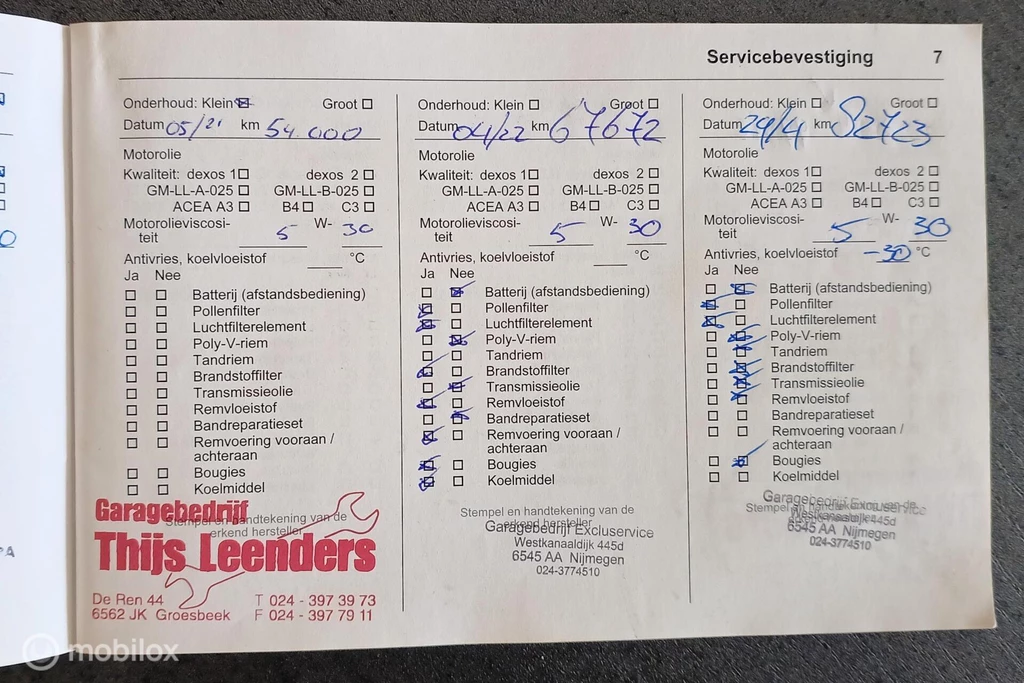 Servicebevestiging 7
Onderhoud: Klein Groot
Datum 05/21 km 54.000
Motorolie
Kwaliteit: dexos 1 dexos 2
GM-LL-A-025 GM-LL-B-025
ACEA A3 B4 C3
Motorolieviscosi-
teit 5 W- 30
Antivries, koelvloeistof °C
Ja Nee
Batterij (afstandsbediening)
Pollenfilter
Luchtfilterelement
Poly-V-riem
Tandriem
Brandstoffilter
Transmissieolie
Remvloeistof
Bandreparatieset
Remvoering vooraan /
achteraan
Bougies
Koelmiddel
Stempel en handtekening van de
erkend hersteller
Garagebedrijf
Thijs Leenders
De Ren 44 T 024 - 397 39 73
6562 JK Groesbeek F 024 - 397 79 11
Onderhoud: Klein Groot
Datum 04/22 km 67672
Motorolie
Kwaliteit: dexos 1 dexos 2
GM-LL-A-025 GM-LL-B-025
ACEA A3 B4 C3
Motorolieviscosi-
teit 5 W- 30
Antivries, koelvloeistof °C
Ja Nee
Batterij (afstandsbediening)
Pollenfilter
Luchtfilterelement
Poly-V-riem
Tandriem
Brandstoffilter
Transmissieolie
Remvloeistof
Bandreparatieset
Remvoering vooraan /
achteraan
Bougies
Koelmiddel
Stempel en handtekening van de
erkend hersteller
Garagebedrijf Excluservice
Westkanaaldijk 445d
6545 AA Nijmegen
024-3774510
Onderhoud: Klein Groot
Datum 29/4 km 82723
Motorolie
Kwaliteit: dexos 1 dexos 2
GM-LL-A-025 GM-LL-B-025
ACEA A3 B4 C3
Motorolieviscosi-
teit 5 W- 30
Antivries, koelvloeistof -30 °C
Ja Nee
Batterij (afstandsbediening)
Pollenfilter
Luchtfilterelement
Poly-V-riem
Tandriem
Brandstoffilter
Transmissieolie
Remvloeistof
Bandreparatieset
Remvoering vooraan /
achteraan
Bougies
Koelmiddel
Garagebedrijf Excluservice
Stempel en handtekening van de
Westkanaaldijk 445d
6545 AA Nijmegen
024-3774510
mobilox